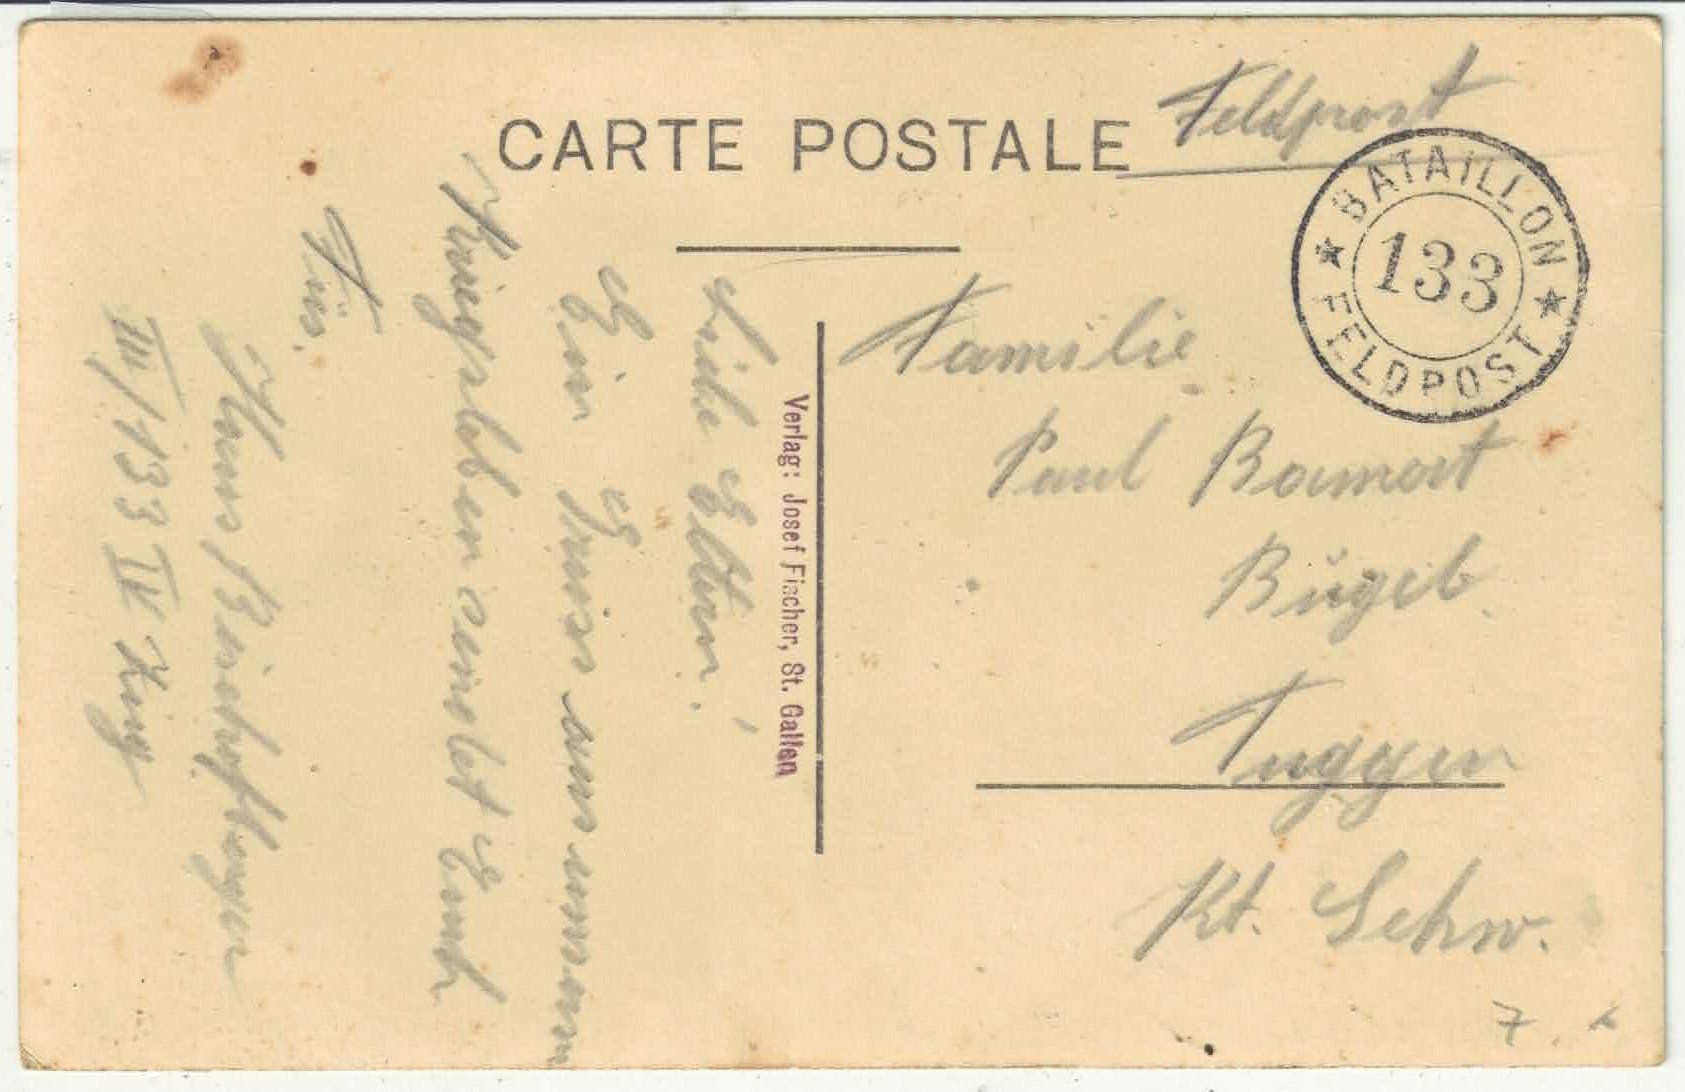 CARTE POSTALE
Feldpost
BATAILLON
133
FELDPOST
Familie
Paul Bamert
Tuggen
Kt. Schw.
Verlag: Josef Fischer, St. Gallen
Liebe Eltern!
Ein Gruss aus unserm
Kriegsleben sendet Euch
III/133 IV Zug
7